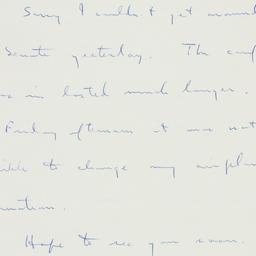 Sorry I couldn't get around
Senate yesterday. The conf
in lasted much longer.
Friday afternoon it was not
ible to change my airplan
mation.
Hope to see you soon.